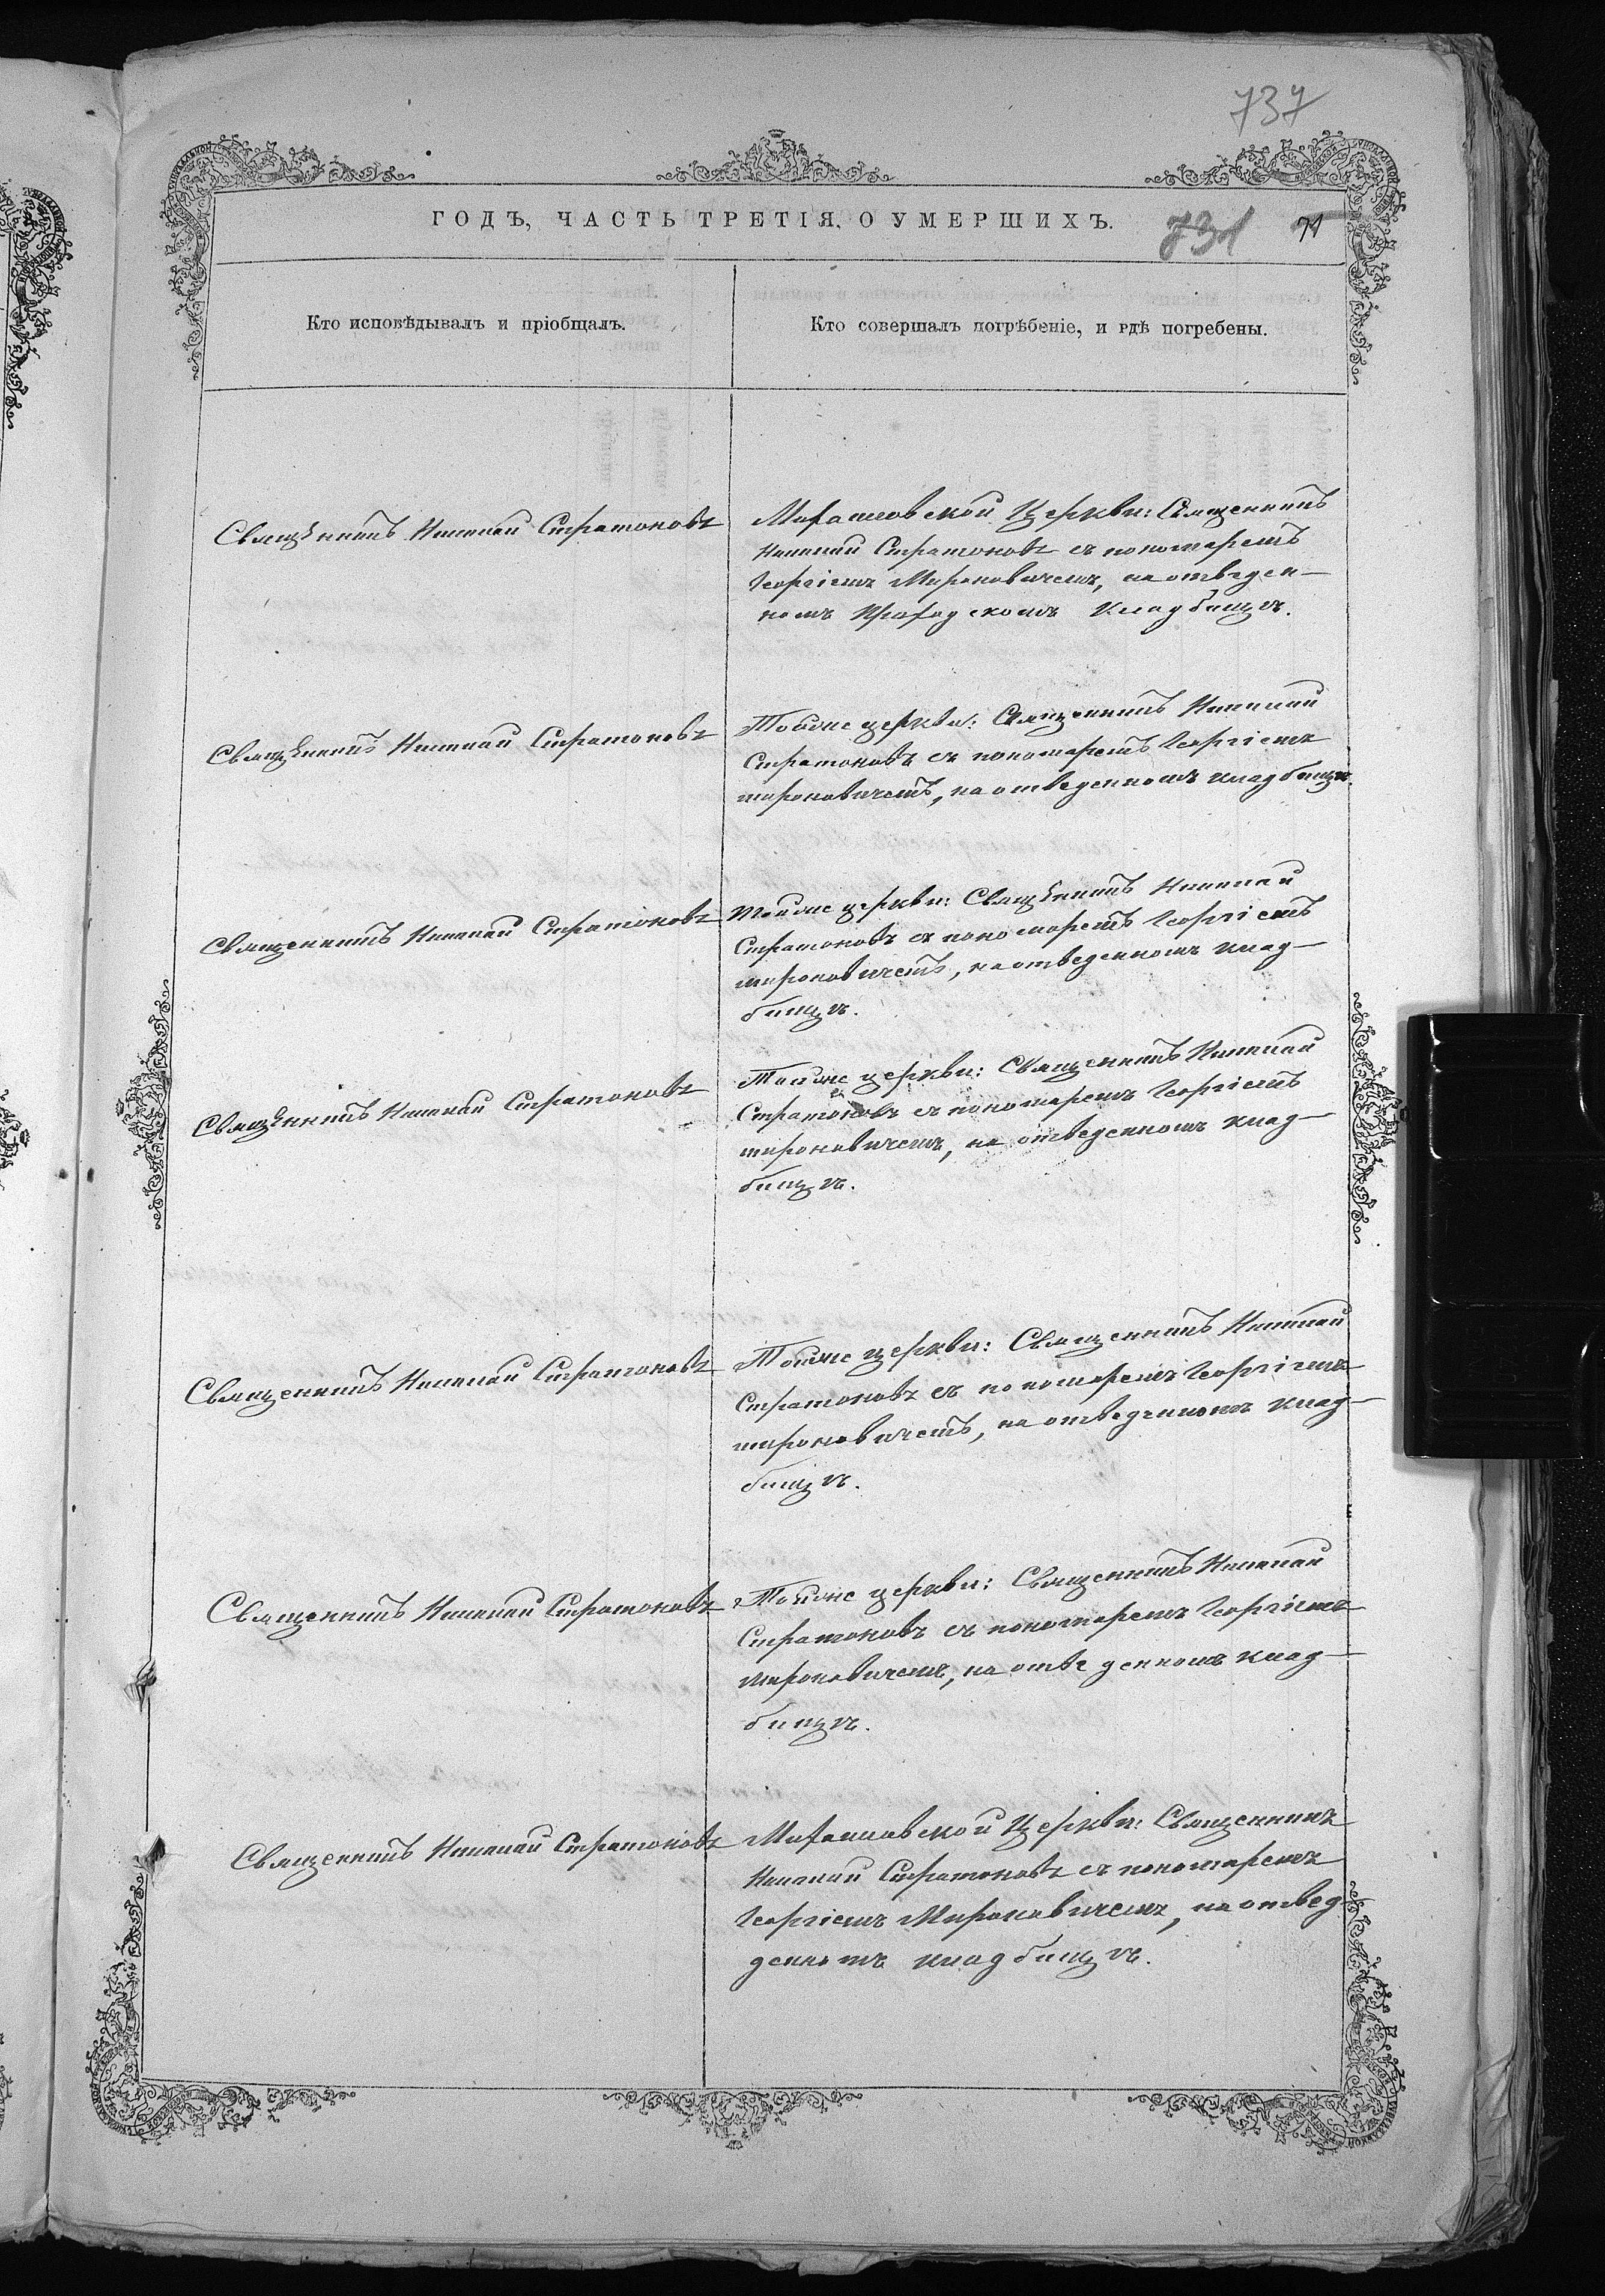 737
ГОДЪ, ЧАСТЬ ТРЕТІЯ, О УМЕРШИХЪ.
731
71
Кто исповѣдывалъ и пріобщалъ.
Кто совершалъ погрѣбеніе, и гдѣ погребены.
Священникъ Николай Стратоновъ
Церкви: Священникъ
Николай Стратоновъ съ пономаремъ
Георгіемъ Мироновичемъ, на отведен-
номъ кладбищѣ.
Священникъ Николай Стратоновъ
Тойже церкви: Священникъ Николай
Стратоновъ съ пономаремъ Георгіемъ
мироновичемъ, на отведенномъ кладбищѣ.
Священникъ Николай Стратоновъ
тойже церкви: Священникъ Николай
Стратоновъ съ пономаремъ Георгіемъ
мироновичемъ, на отведенномъ клад-
бищѣ.
Священникъ Николай Стратоновъ
Тойже церкви: Священникъ Николай
Стратоновъ съ пономаремъ Георгіемъ
мироновичемъ, на отведенномъ клад-
бищѣ.
Священникъ Николай Стратоновъ
Тойже церкви: Священникъ Николай
Стратоновъ съ пономаремъ Георгіемъ
мироновичемъ, на отведенномъ клад-
бищѣ.
Священникъ Николай Стратоновъ
Тойже церкви: Священникъ Николай
Стратоновъ съ пономаремъ Георгіемъ
мироновичемъ, на отведенномъ клад-
бищѣ.
Священникъ Николай Стратоновъ
Церкви: Священникъ
Николай Стратоновъ съ пономаремъ
Георгіемъ Мироновичемъ, на отвед-
денномъ кладбищѣ.